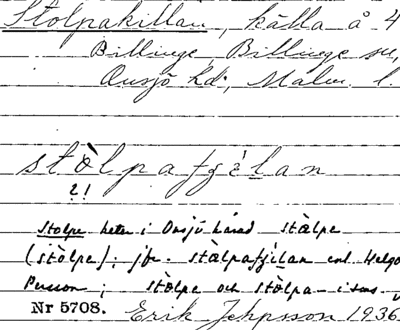 Stolpakillan, källa å 4
Billinge, Billinge sn,
Onsjö hd, Malm. l.
stòlpafgèlan
2!
Stolpe heter i Onsjö härad stålpe
(stòlpe); jfr. stålpafjelan enl. Helge
Persson; stòlpe och stòlpa- i sms
Nr 5708. Erik Jeppsson 1936.